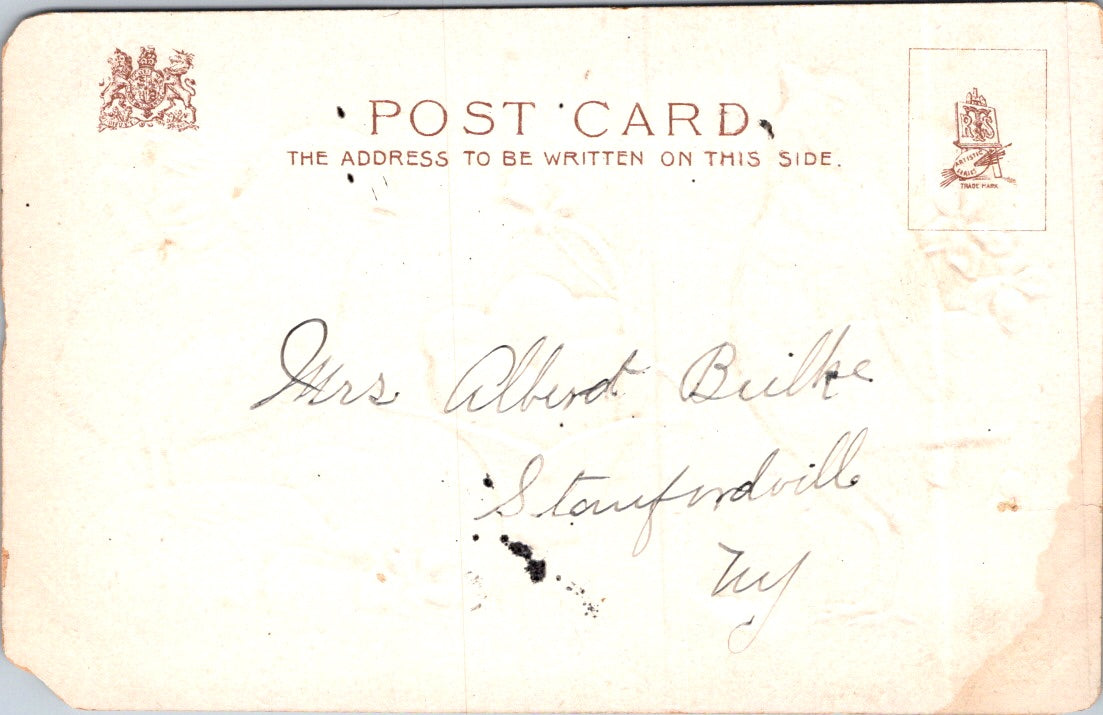 POST CARD
THE ADDRESS TO BE WRITTEN ON THIS SIDE.
ARTISTIC
SERIES
TRADE MARK
Mrs Albert
Stanfordvill
NY